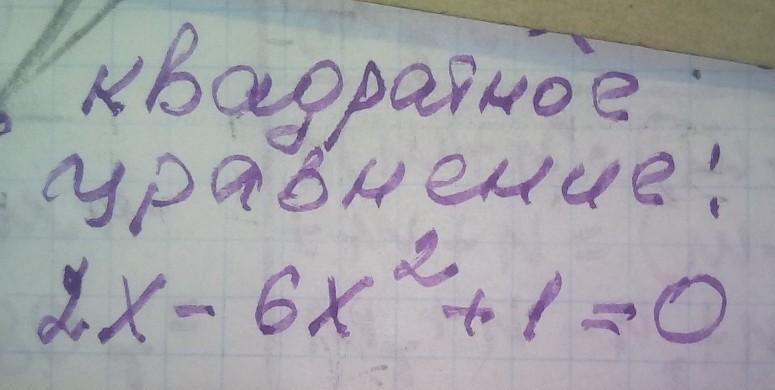 квадратное
уравнение:
2x - 6x² + 1 = 0